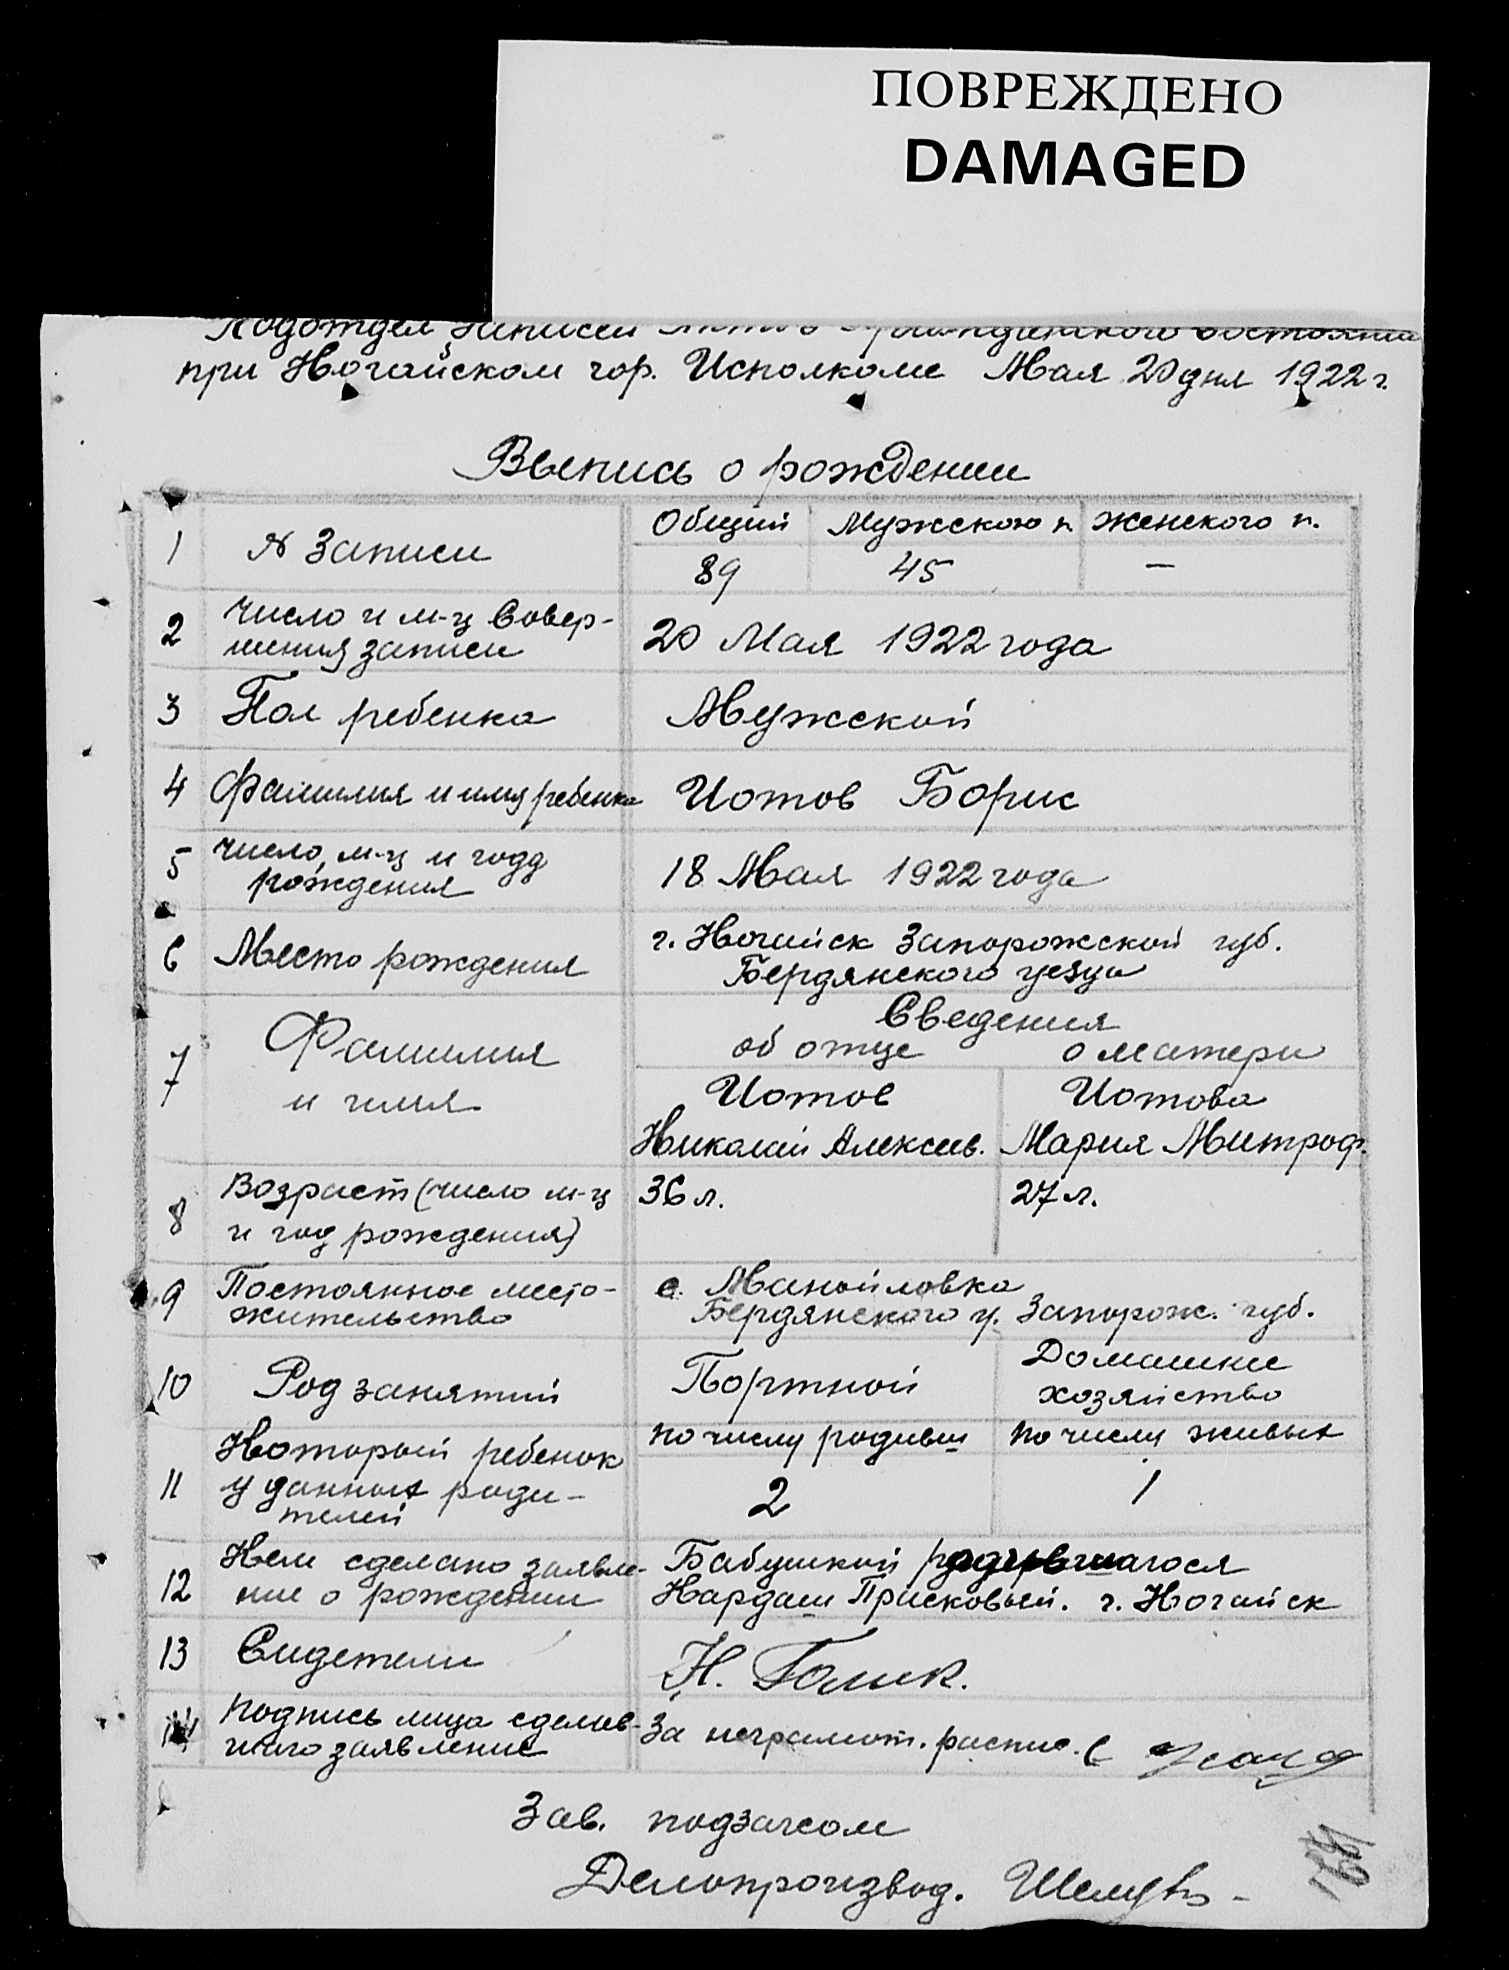 ПОВРЕЖДЕНО
DAMAGED
Подотдел Записей Актов Гражданского Состояния
при Ногайском гор. Исполкоме Мая 20 дня 1922 г.
Выпись о рождении
1 № Записи Общий Мужского п. Женского п.
89 45 —
2 Число и м-ц Совер-
шения записи 20 Мая 1922 года
3 Пол ребенка Мужской
4 Фамилия и имя ребенка Иотов Борис
5 Число, м-ц и год
рождения 18 Мая 1922 года
6 Место рождения г. Ногайск Запорожской губ.
Бердянского уезда
7 Фамилия и имя Сведения
об отце о матери
Иотов Иотова
Николай Алексеев. Мария Митроф.
8 Возраст (число м-ц
и год рождения) 36 л. 27 л.
9 Постоянное место-
жительство с. Манойловка
Бердянского у. Запорож. губ.
10 Род занятий Портной Домашнее
хозяйство
11 Который ребенок
у данных роди-
телей по числу родивш по числу живых
2 1
12 Кем сделано заявле-
ние о рождении Бабушкой родившагося
Кардаш Присковьей. г. Ногайск
13 Свидетели Н. Голик.
14 Подпись лица сделав-
шаго заявление За неграмот. распис.
Зав. подзагсом
Делопроизвод.